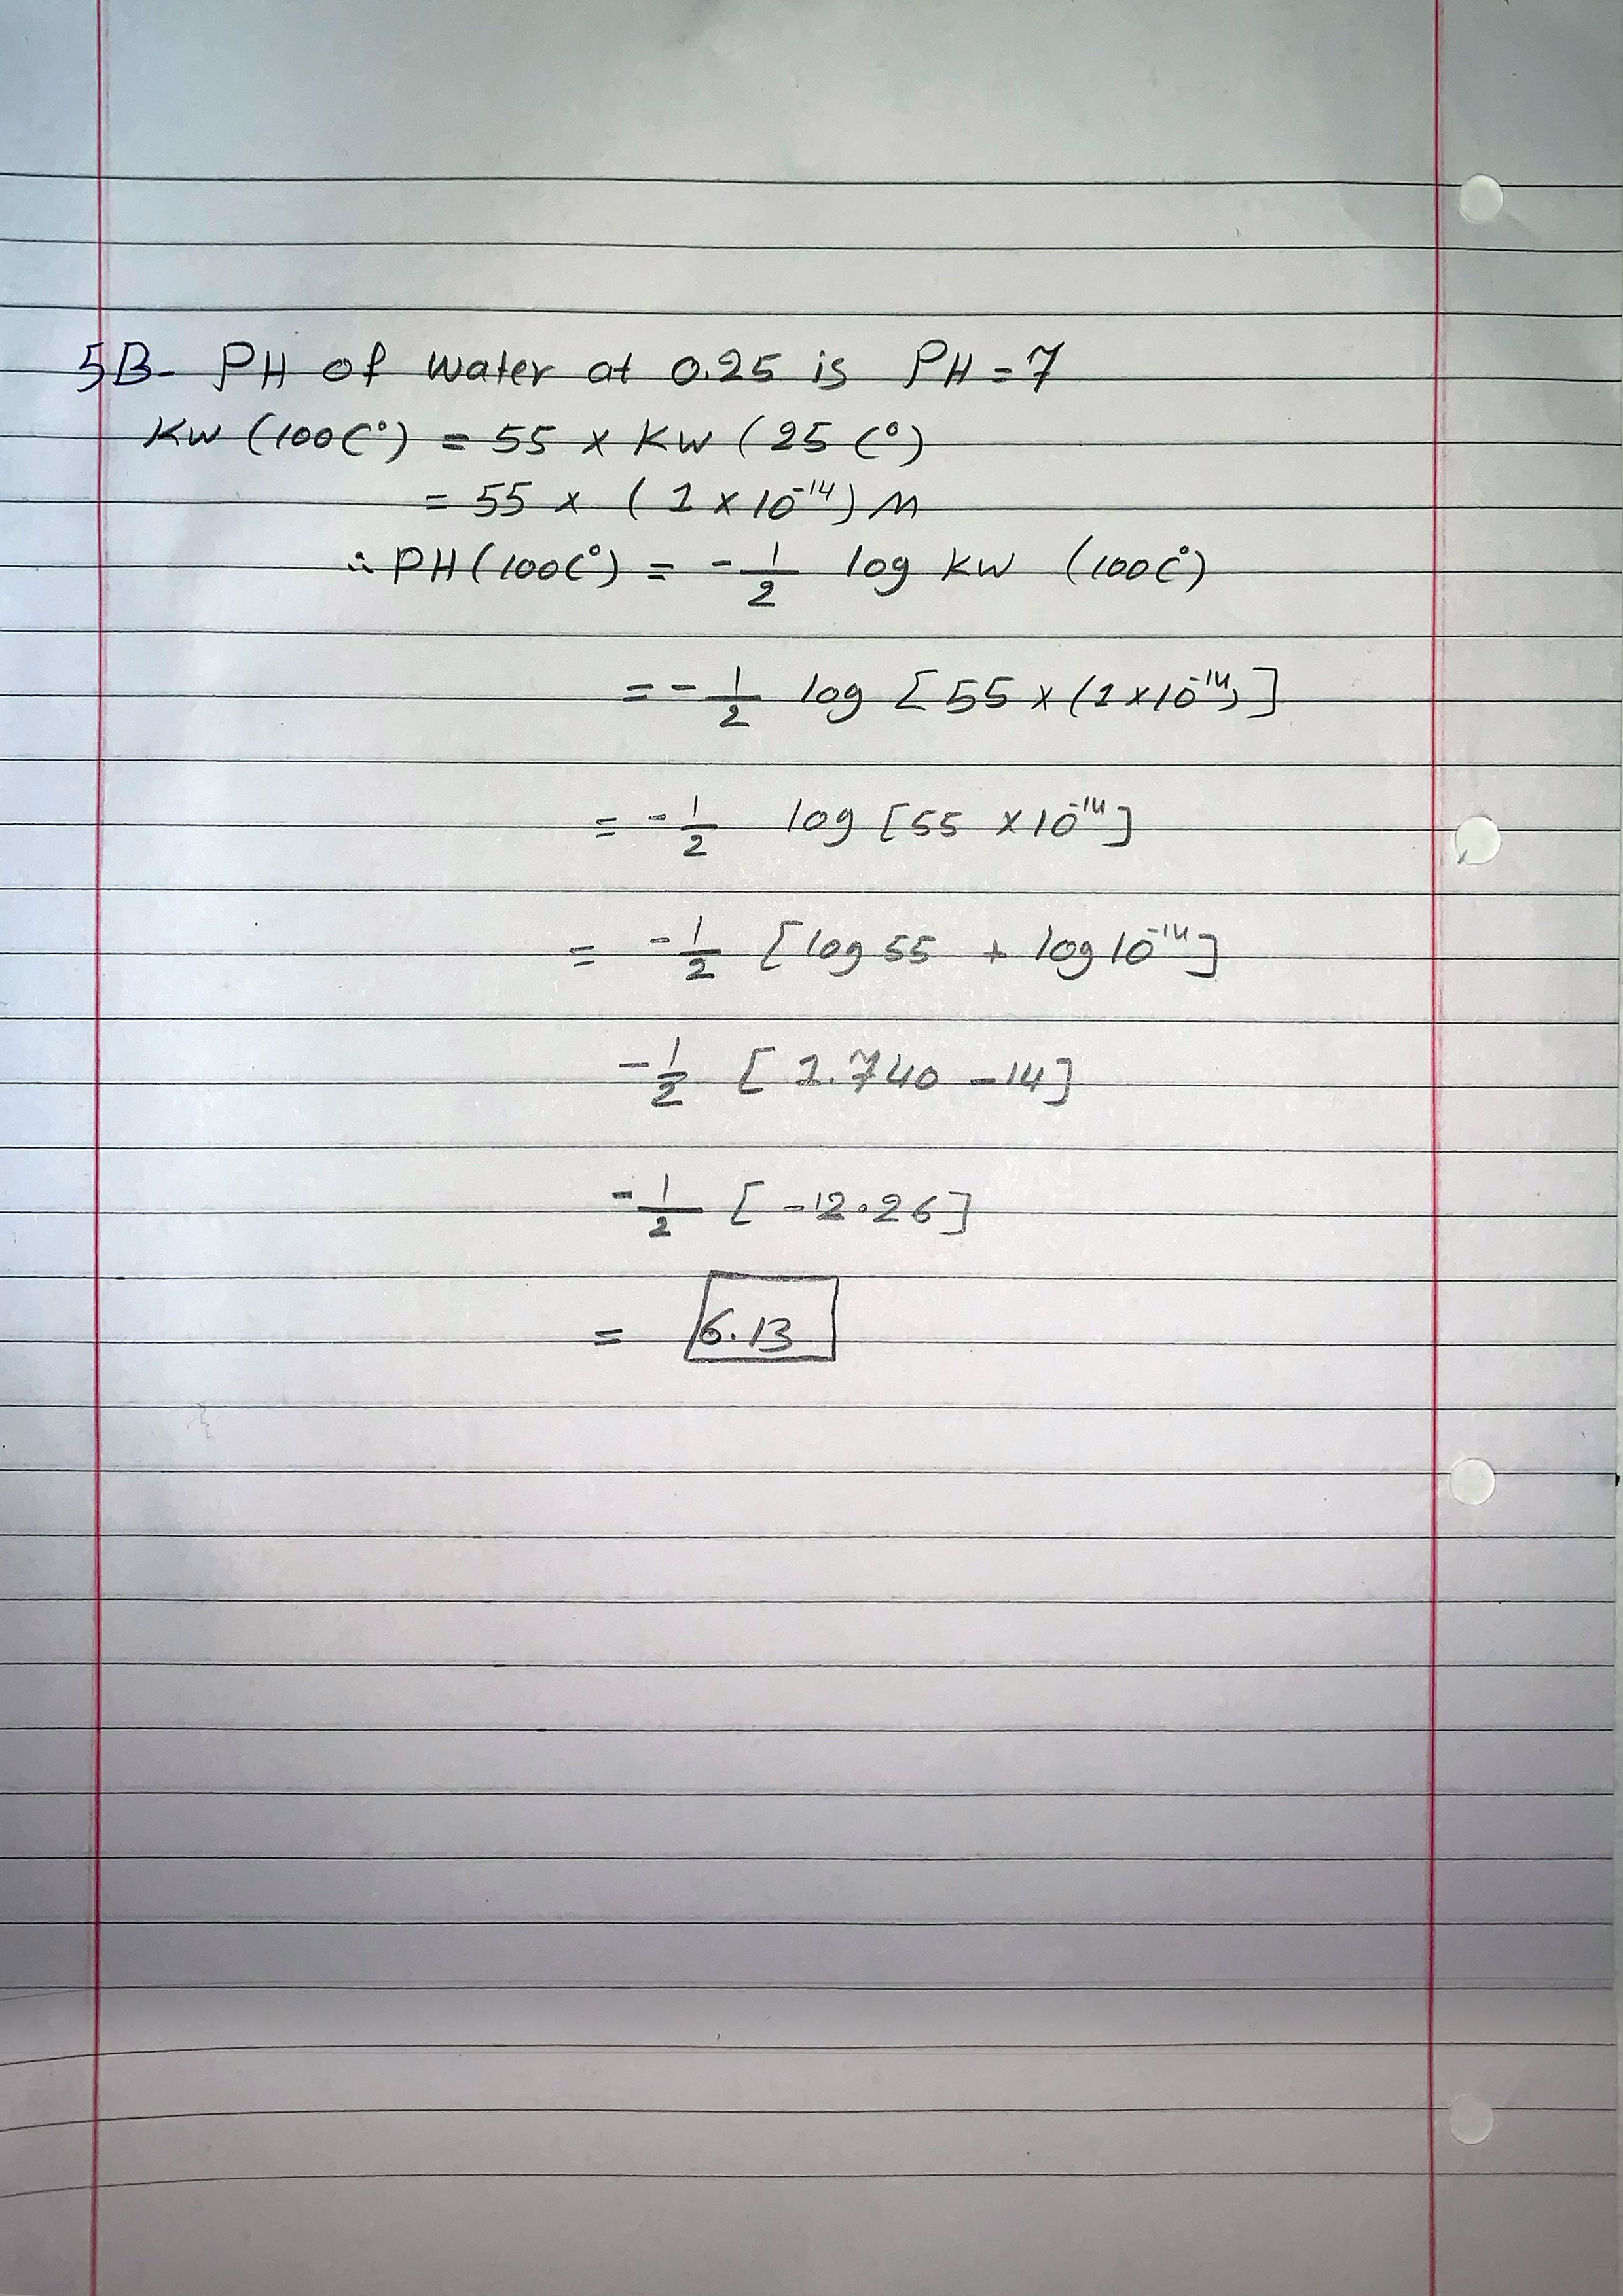 5B- PH of water at 0.25 is PH = 7
KW (100C°) = 55 x KW (25 C°)
= 55 x (1 x 10⁻¹⁴) M
∴ PH (100C°) = - 1/2 log KW (100C°)
= - 1/2 log [55 x (1 x 10⁻¹⁴)]
= - 1/2 log [55 x 10⁻¹⁴]
= - 1/2 [log 55 + log 10⁻¹⁴]
- 1/2 [1.740 - 14]
- 1/2 [-12.26]
= 6.13